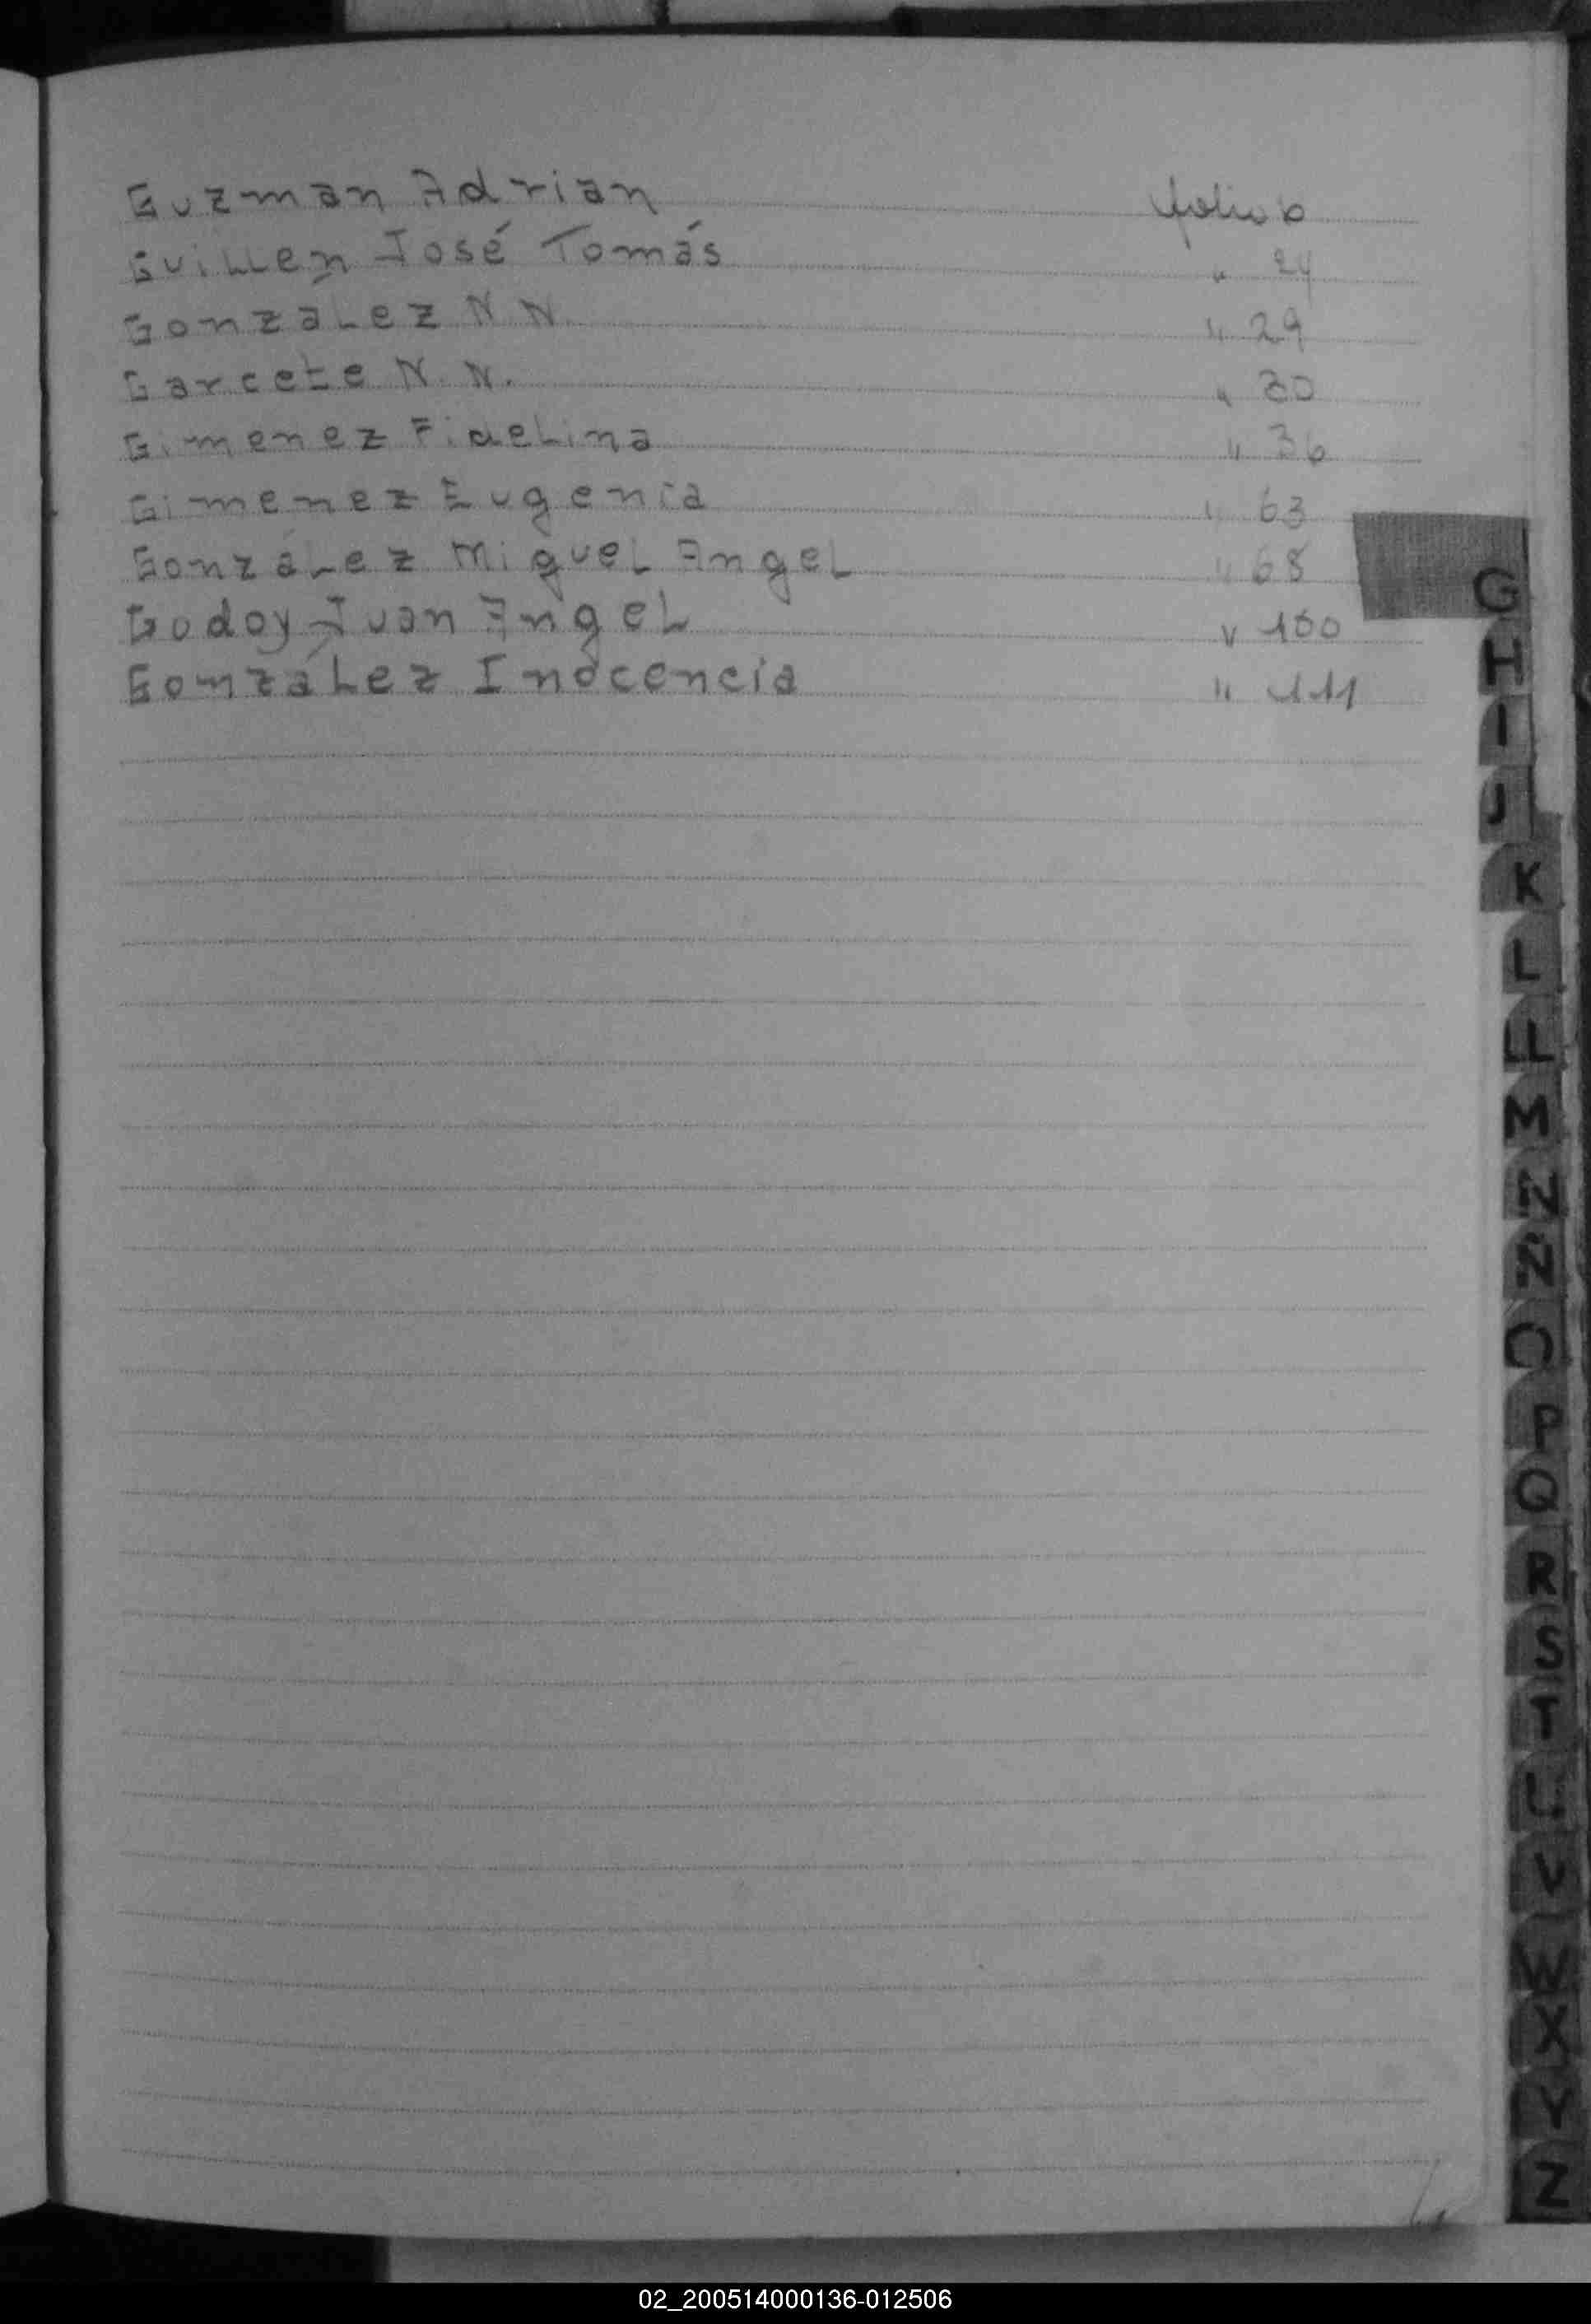 Guzman Adrian folio 6
Guillen José Tomás " 24
Gonzalez N N. " 29
Garcete N. N. " 30
Gimenez Fidelina " 36
Gimenez Eugenia " 63
González Miguel Angel " 68
Godoy Juan Angel " 100
González Inocencia " 111
G
H
I
J
K
L
LL
M
N
Ñ
O
P
Q
R
S
T
U
V
W
X
Y
Z
02_200514000136-012506